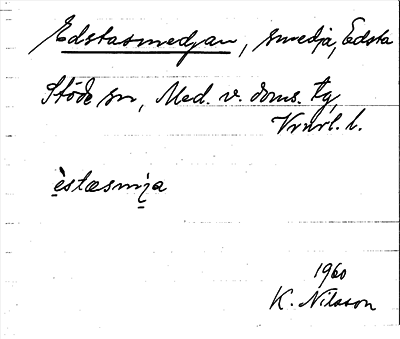 Edstasmedjan, smedja, Edsta
Stöde sn, Med. v. doms. tg,
Vrnrl. l.
èstasmija
1960
K. Nilsson